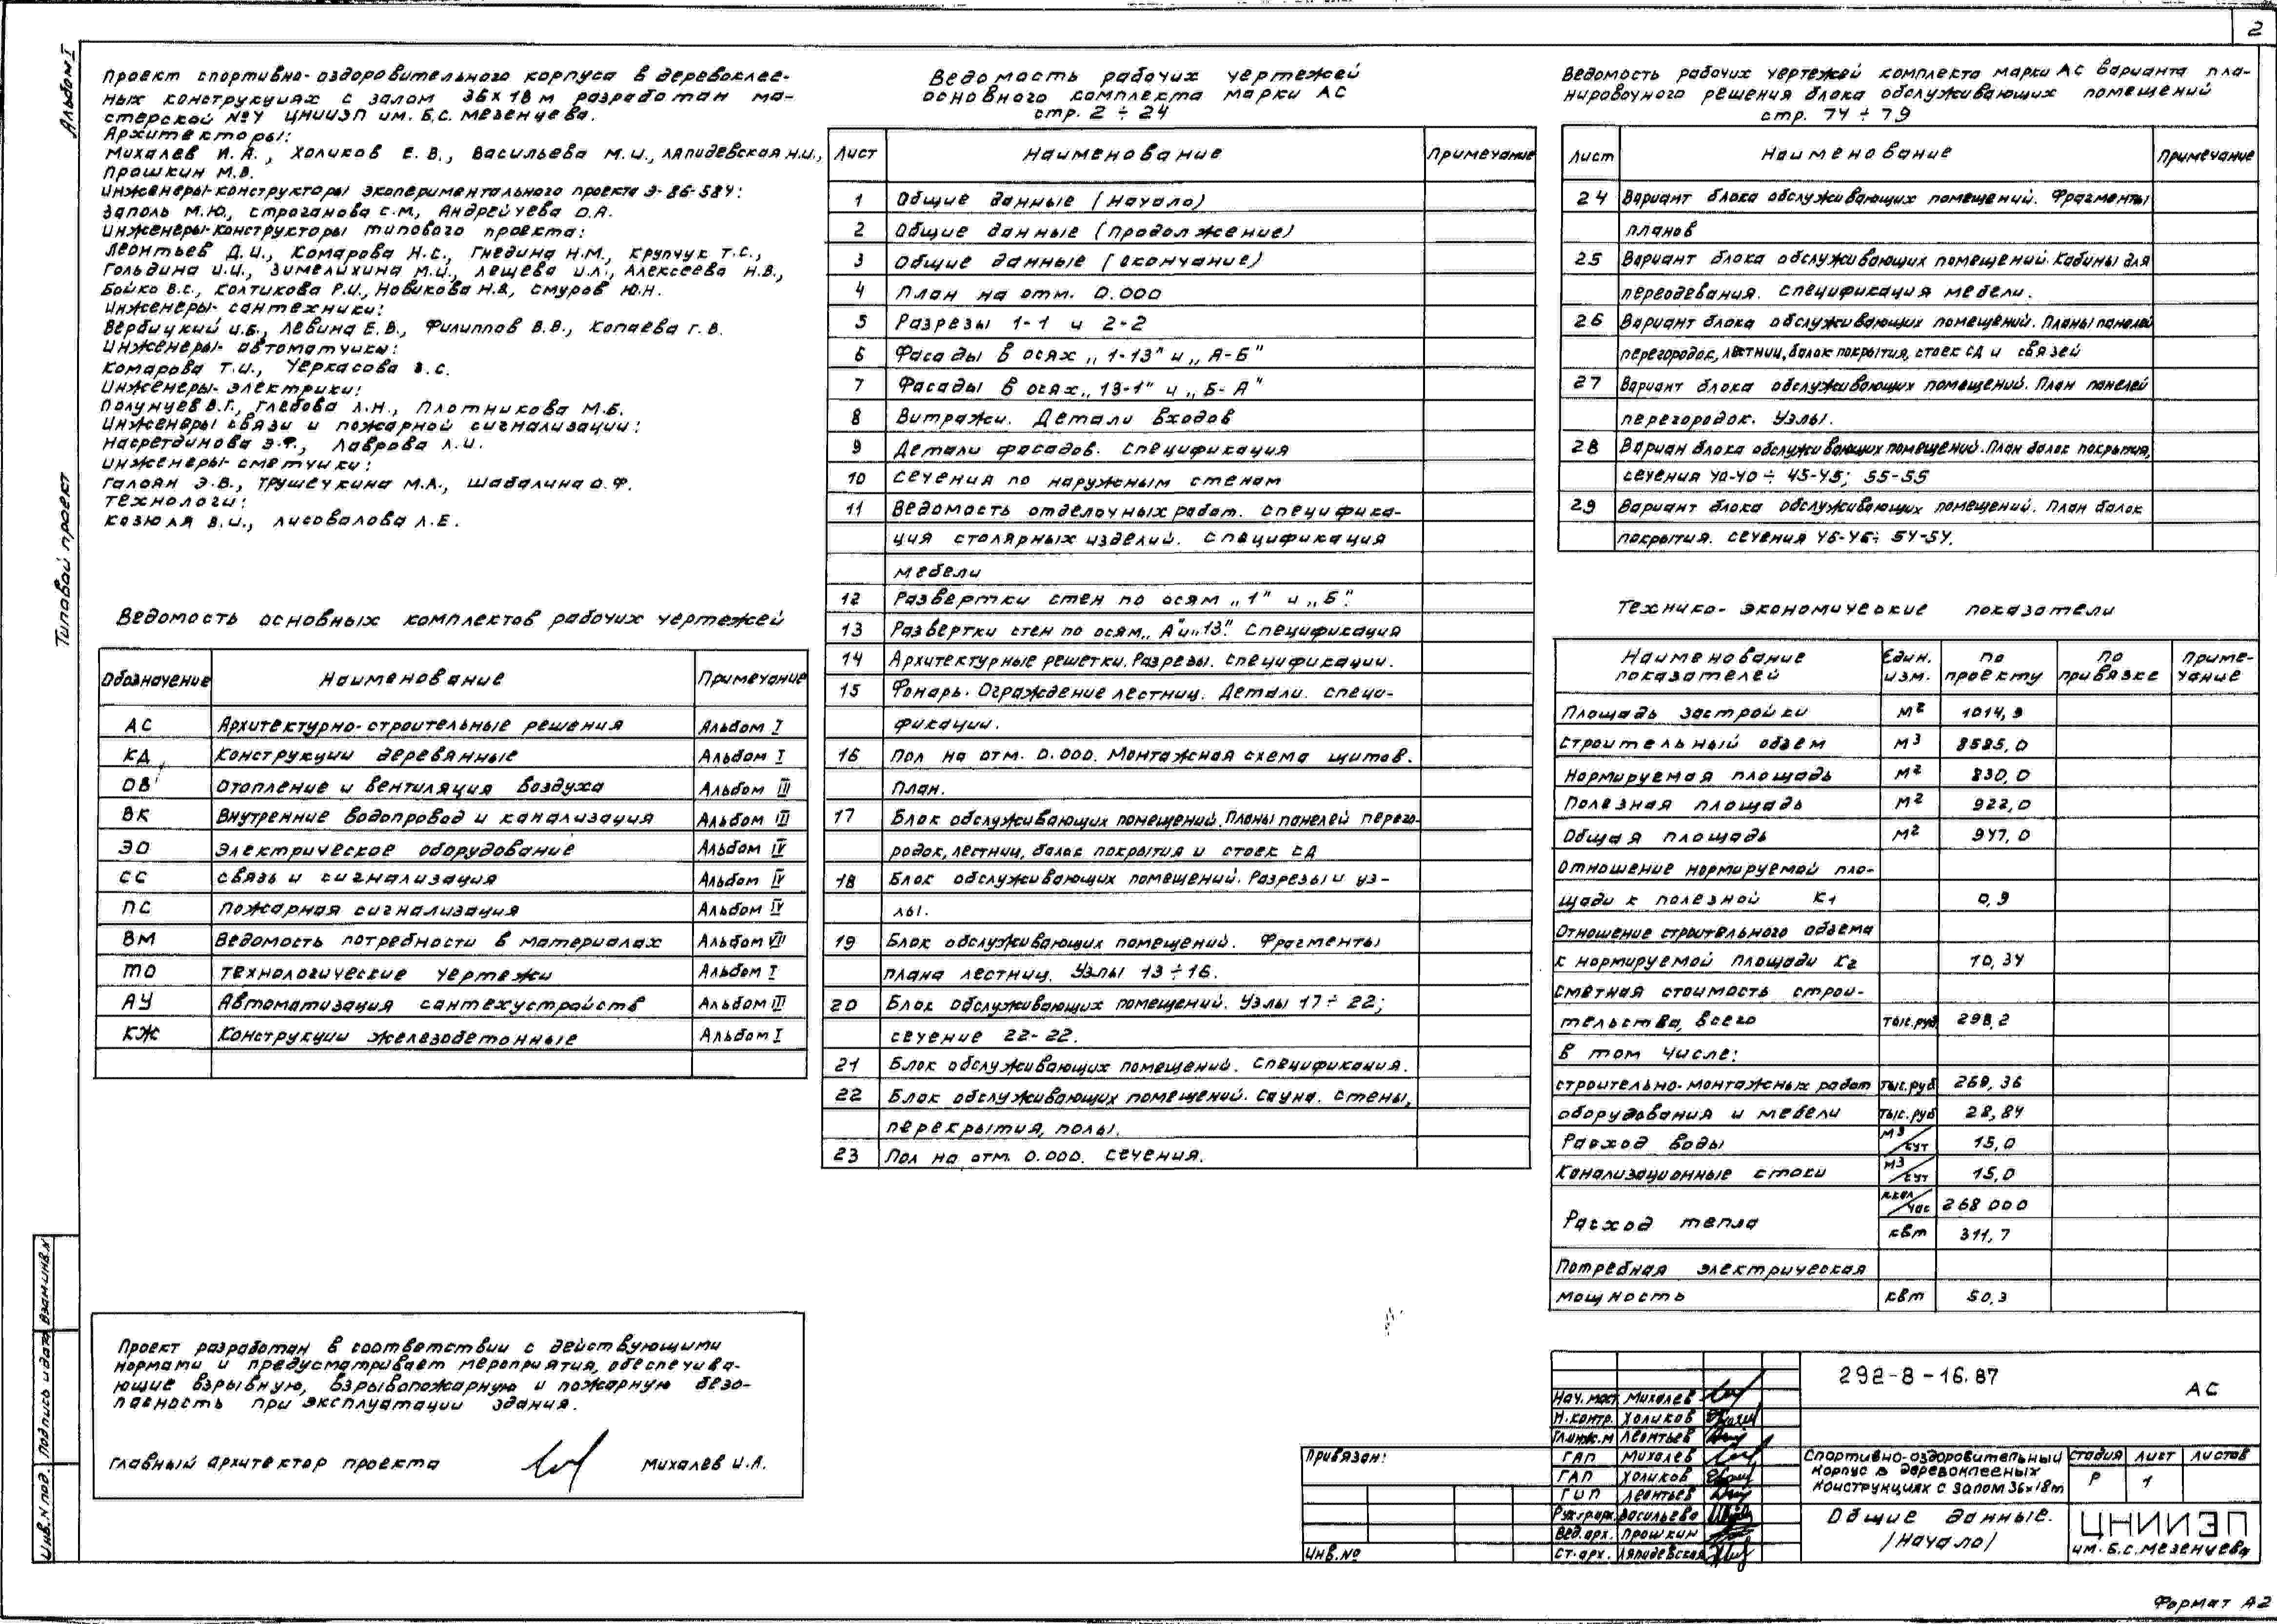 2
Альбом I
Типовой проект
Проект спортивно-оздоровительного корпуса в деревоклее-
ных конструкциях с залом 36х18 м разработан ма-
стерской №4 ЦНИИЭП им. Б.С. Мезенцева.
Архитекторы:
Михалев И.А., Холиков Е.В., Васильева М.И., Ляпидевская Н.И.,
Прошкин М.В.
Инженеры-конструкторы экспериментального проекта Э-86-584:
Заполь М.Ю., Строганова С.М., Андрейчева О.А.
Инженеры-конструкторы типового проекта:
Леонтьев Д.И., Комарова Н.С., Гнедина Н.М., Крупчук Т.С.,
Гольдина И.И., Зимелихина М.И., Лещева И.Л., Алексеева Н.В.,
Бойко В.С., Колтикова Р.И., Новикова Н.В, Смуров Ю.Н.
Инженеры-сантехники:
Вербицкий И.Б., Левина Е.В., Филиппов В.В., Копаева Г.В.
Инженеры-автоматчики:
Комарова Т.И., Черкасова З.С.
Инженеры-электрики:
Полунцев В.Г., Глебова Л.Н., Плотникова М.Б.
Инженеры связи и пожарной сигнализации:
Насретдинова Э.Ф., Лаврова Л.И.
Инженеры-сметчики:
Галоян Э.В., Трушечкина М.А., Шабалина О.Ф.
Технологи:
Козюля В.И., Лисовалова Л.Е.
Ведомость основных комплектов рабочих чертежей
Обозначение Наименование Примечание
АС Архитектурно-строительные решения Альбом I
КД Конструкции деревянные Альбом I
ОВ Отопление и вентиляция воздуха Альбом III
ВК Внутренние водопровод и канализация Альбом III
ЭО Электрическое оборудование Альбом IV
СС Связь и сигнализация Альбом IV
ПС Пожарная сигнализация Альбом IV
ВМ Ведомость потребности в материалах Альбом VII
ТО Технологические чертежи Альбом I
АУ Автоматизация сантехустройств Альбом III
КЖ Конструкции железобетонные Альбом I
Проект разработан в соответствии с действующими
нормами и предусматривает мероприятия, обеспечива-
ющие взрывную, взрывопожарную и пожарную безо-
пасность при эксплуатации здания.
Главный архитектор проекта Михалев И.А.
Ведомость рабочих чертежей
основного комплекта марки АС
стр. 2 ÷ 24
Лист Наименование Примечание
1 Общие данные (начало)
2 Общие данные (продолжение)
3 Общие данные (окончание)
4 План на отм. 0.000
5 Разрезы 1-1 и 2-2
6 Фасады в осях „1-13" и „А-Б"
7 Фасады в осях „13-1" и „Б-А"
8 Витражи. Детали входов
9 Детали фасадов. Спецификация
10 Сечения по наружным стенам
11 Ведомость отделочных работ. Специфика-
ция столярных изделий. Спецификация
мебели
12 Развертки стен по осям „1" и „Б".
13 Развертки стен по осям „А" и „13". Спецификация
14 Архитектурные решетки. Разрезы. Спецификации.
15 Фонарь. Ограждение лестниц. Детали. Специ-
фикации.
16 Пол на отм. 0.000. Монтажная схема щитов.
План.
17 Блок обслуживающих помещений. Планы панелей перего-
родок, лестниц, балок покрытия и стоек СД
18 Блок обслуживающих помещений. Разрезы и уз-
лы.
19 Блок обслуживающих помещений. Фрагменты
плана лестниц. Узлы 13÷16.
20 Блок обслуживающих помещений. Узлы 17÷22;
сечение 22-22.
21 Блок обслуживающих помещений. Спецификация.
22 Блок обслуживающих помещений. Сауна. Стены,
перекрытия, полы.
23 Пол на отм. 0.000. Сечения.
Ведомость рабочих чертежей комплекта марки АС варианта пла-
нировочного решения блока обслуживающих помещений
стр. 74 ÷ 79
Лист Наименование Примечание
24 Вариант блока обслуживающих помещений. Фрагменты
планов
25 Вариант блока обслуживающих помещений. Кабины для
переодевания. Спецификация мебели.
26 Вариант блока обслуживающих помещений. Планы панелей
перегородок, лестниц, балок покрытия, стоек СД и связей
27 Вариант блока обслуживающих помещений. План панелей
перегородок. Узлы.
28 Вариан блока обслуживающих помещений. План балок покрытия,
сечения 40-40 ÷ 45-45; 55-55
29 Вариант блока обслуживающих помещений. План балок
покрытия. Сечения 46-46÷ 54-54.
Технико-экономические показатели
Наименование показателей Един. изм. По проекту По привязке Приме-чание
Площадь застройки м² 1014,9
Строительный объем м³ 8585,0
Нормируемая площадь м² 830,0
Полезная площадь м² 922,0
Общая площадь м² 947,0
Отношение нормируемой пло-
щади к полезной К1 0,9
Отношение строительного объема
к нормируемой площади К2 10,34
Сметная стоимость строи-
тельства, всего тыс.руб 298,2
в том числе:
строительно-монтажных работ тыс.руб 269,36
оборудования и мебели тыс.руб 28,84
Расход воды м3/сут 15,0
Канализационные стоки м3/сут 15,0
Расход тепла ккал/час 268 000
квт 311,7
Потребная электрическая
мощность квт 50,3
Привязан:
Инв.№
Нач.маст Михалев
Н.контр. Холиков
Гл.инж.м Леонтьев
ГАП Михалев
ГАП Холиков
ГИП Леонтьев
Рук.гр.арх. Васильева
Вед.арх. Прошкин
Ст.арх. Ляпидевская
292-8-16.87
АС
Спортивно-оздоровительный
корпус в деревоклееных
конструкциях с залом 36х18м
Стадия Лист Листов
Р 1
Общие данные.
/начало/
ЦНИИЭП
им. Б.С. Мезенцева
Инв.N подл. Подпись и дата Взам.инв.N
Формат А2